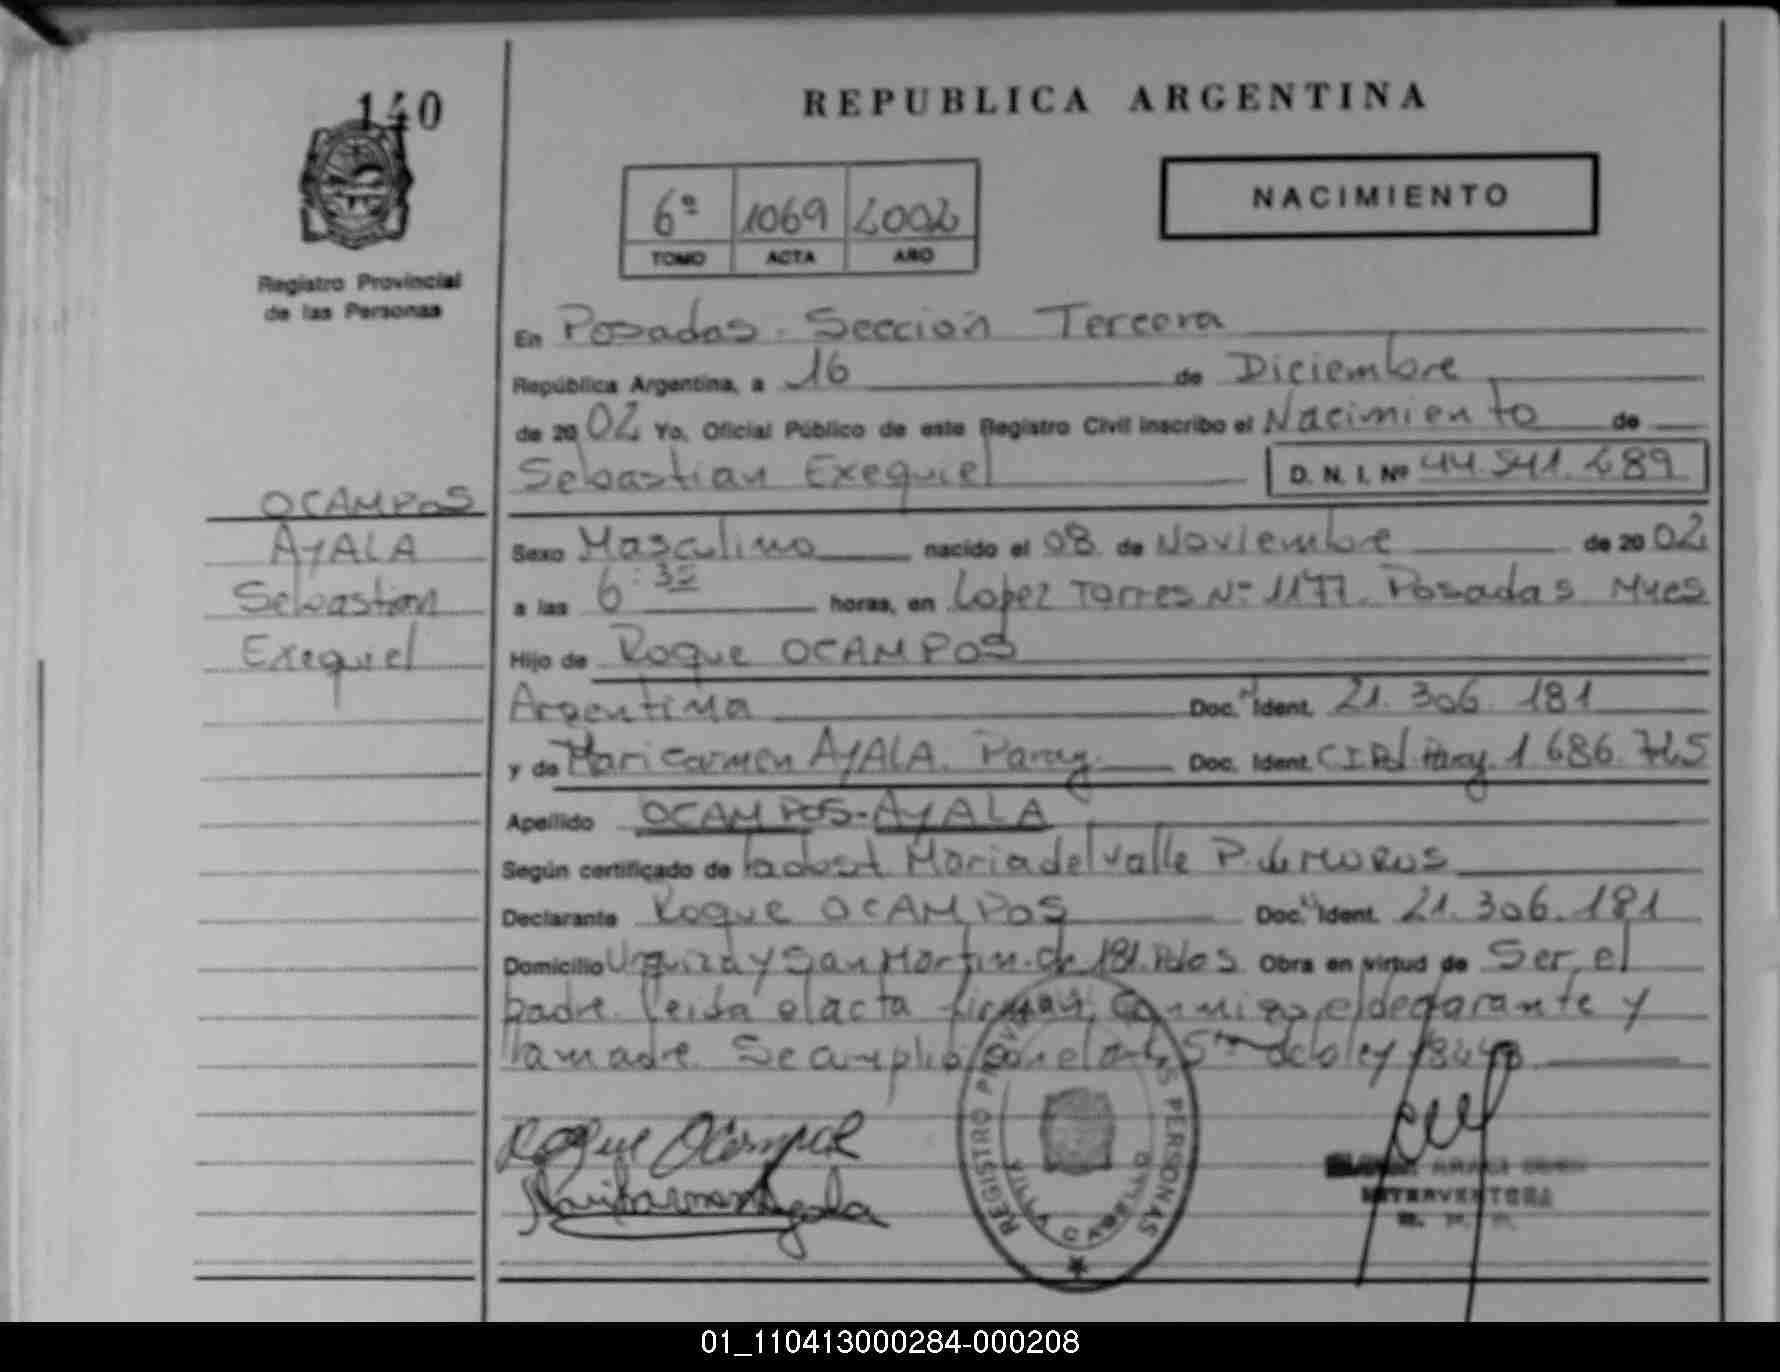 140
REPUBLICA ARGENTINA
6º 1069 2002
TOMO ACTA AÑO
NACIMIENTO
Registro Provincial
de las Personas
En Posadas - Sección Tercera
República Argentina, a 16 de Diciembre
de 2002 Yo, Oficial Público de este Registro Civil inscribo el Nacimiento de
Sebastian Exequiel D. N. I. Nº 44.541.289
OCAMPOS
AYALA
Sebastian
Exequiel
Sexo Masculino nacido el 08 de Noviembre de 2002
a las 6:35 horas, en Lopez Torres Nº 1177. Posadas Mnes
Hijo de Roque OCAMPOS
Argentina Doc. N Ident. 21.306.181
y de Maricarmen AYALA. Parag. Doc. Ident. C.I. Pol. Parag. 1.686.725
Apellido OCAMPOS-AYALA
Según certificado de Maria del Valle P. de
Declarante Roque OCAMPOS Doc. Ident. 21.306.181
Domicilio Urquiza y San Martin. 181. Pdas Obra en virtud de Ser el
padre. Leida el acta firman conmigo el declarante y
la madre. Se cumplió con el de la ley
Roque Ocampos
Maricarmen Ayala
REGISTRO PERSONAS
VILLA CABELLO
INTERVENTORA
01_110413000284-000208